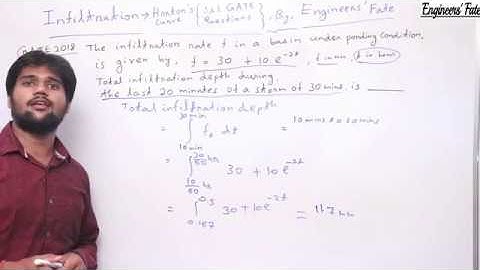 Engineers' Fate
Infiltration → Horton's Curve { S&L GATE Questions }, By, Engineers' Fate
GATE 2018 The infiltration rate f in a basin under ponding condition,
is given by, f = 30 + 10 e^-2t, f in mm, t in hour
Total infiltration depth during
the last 20 minutes of a storm of 30 mins. is ____
Total infiltration depth
= ∫ 10 min 30 min f dt = 10 mins to 30 mins
= ∫ 10/60 hr 30/60 hr 30 + 10e^-2t
= ∫ 0.167 0.5 30 + 10e^-2t = 11.7 mm